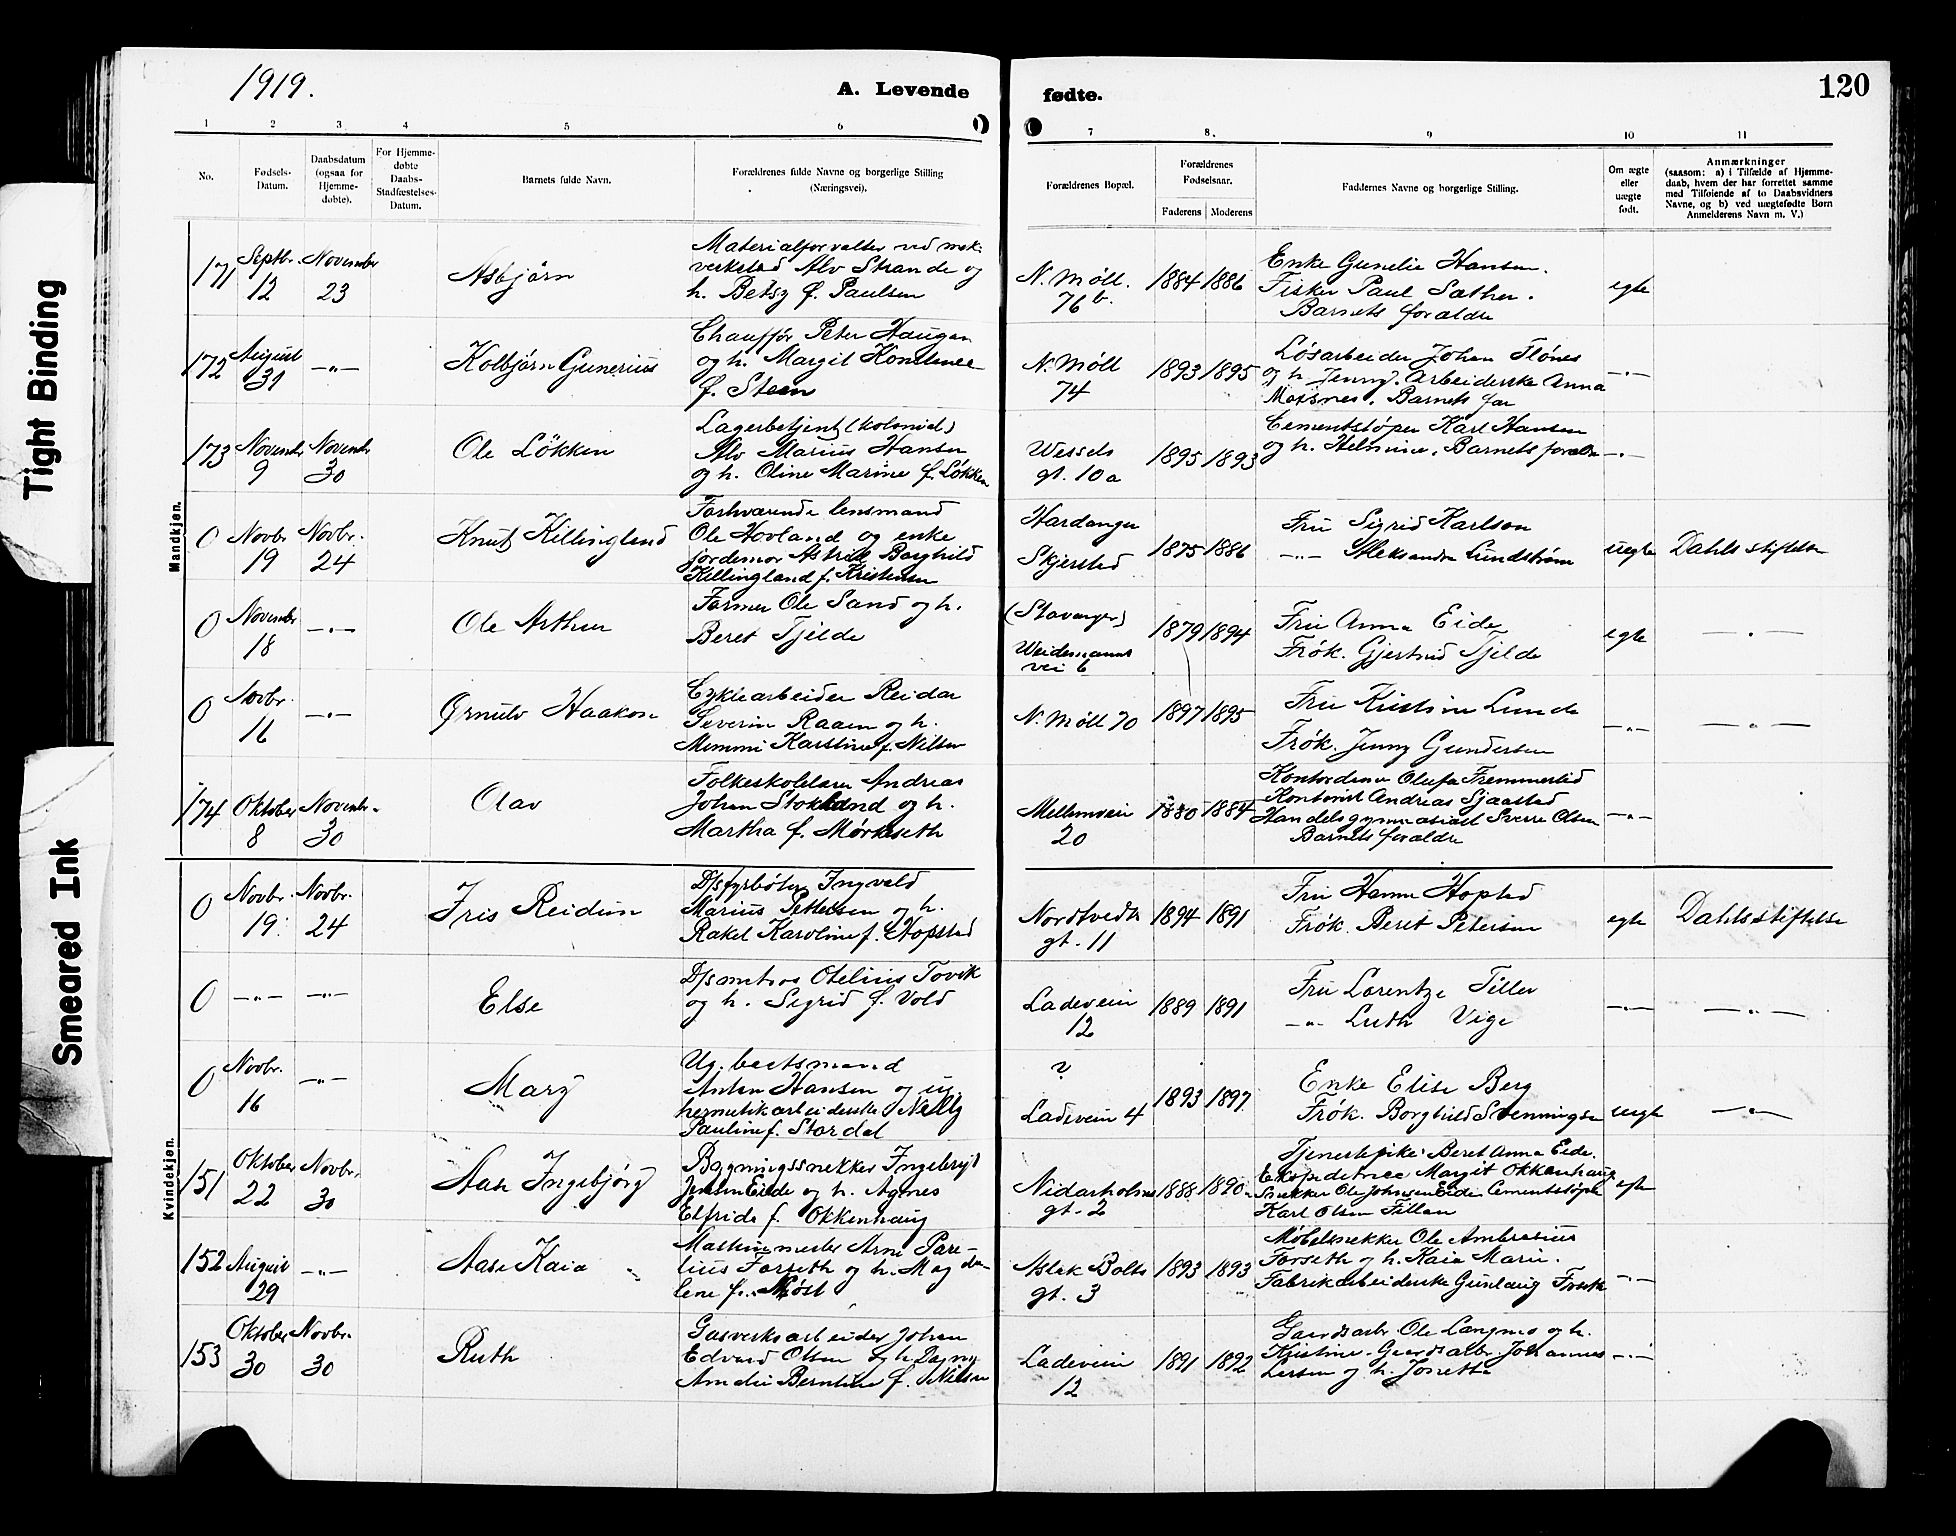 1919.
A. Levende fødte.
120
Tight Binding
Smeared Ink
1 2 3 4 5 6 7 8. 9 10 11
No.
Fødsels-Datum.
Daabsdatum (ogsaa for Hjemme-døbte).
For Hjemme-døbte Daabs-Stadfæstelses-Datum.
Barnets fulde Navn.
Forældrenes fulde Navne og borgerlige Stilling (Næringsvei).
Forældrenes Bopæl.
Forældrenes Fødselsaar.
Faderens Moderens
Faddernes Navne og borgerlige Stilling.
Om ægte eller uægte født.
Anmærkninger
(saasom: a) i Tilfælde af Hjemme-
daab, hvem der har forrettet samme
med Tilføiende af to Daabsvidners
Navne, og b) ved uægtefødte Børn
Anmelderens Navn m. V.)
Mandkjøn.
171 Septbr. 12 November 23
Asbjørn
Materialforvalter ved mek.
verksted Alv Strande og
h. Betsy f. Paulsen
N. Møll. 76 b.
1884 1886
Enke Gunelie Hansen.
Fisker Paul Sæther.
Barnets forældre
egte
172 August 31 -"-
Kolbjørn Gunerius
Chauffør Peter Haugen
og h. Margit Konstance
f. Steen
N. Møll 74
1893 1895
Løsarbeider Johan Flønes
og h. Jenny. Arbeiderske Anna
Moxsnes. Barnets far
-"-
173 Novembr 9 Novembr 30
Ole Løkken
Lagerbetjent (kolonial)
Alv Marius Hansen
og h. Oline Marine f. Løkken
Wessels gt. 10a
1895 1893
Cementstøper Karl Hansen
og h. Helmine. Barnets forældre
-"-
0 Novbr 19 Novbr. 24
Knut Killingland
Forhværende lensmand
Ole Hovland og enke
jordemor Astrid Borghild
Killingland f. Kristensen
Hardanger
Skjersted
1875 1886
Fru Sigrid Karlson
-"- Aleksandra Lundstrøm
uegte
Dahls stiftelse
0 November 18 -"-
Ole Arthur
Farmer Ole Sand og h.
Beret Tjelde
(Stavanger)
Weidemanns vei 6
1879 1894
Fru Anna Eide
Frøk. Gjertrud Tjelde
egte
-"-
0 Novbr. 16 -"-
Ørnulv Haakon
Cyklearbeider Reidar
Severin Raaen og h.
Mimmi Karstine f. Nilsen
N. Møll 70
1897 1895
Fru Kristine Lunde
Frøk. Jenny Gundersen
-"-
-"-
174 Oktober 8 Novembr. 30
Olav
Folkeskolelærer Andreas
Johan Stokland og h.
Martha f. Mørkeseth
Mellemveien 20
1880 1884
Kontordame Olufa Fremmerlid
Kontorist Andreas Sjaastad
Handelsgymnasiast Sverre Olsen
Barnets forældre
-"-
Kvindekjøn.
0 Novbr. 19. Novbr. 24
Iris Reidun
D/s fyrbøter Ingvald
Marius Pettersen og h.
Rakel Karoline f. Hopsted
Nordtvedts gt. 11
1894 1891
Fru Hanna Hopsted
Frøk. Beret Petersen
egte
Dahlsstiftelse
0 -"- -"-
Else
D/s matros Otelius Tovik
og h. Sigrid f. Vold
Ladeveien 12
1889 1891
Fru Lorentze Tiller
-"- Luth Vige
-"-
-"-
0 Novbr. 16 -"-
Mary
Ug. baatsmand
Anton Hansen og ug
hermetikarbeiderske Nelly
Pauline f. Stordal
?
Ladeveien 4
1893 1897
Enke Elise Berg
Frøk. Borghild Svenningsen
uegte
-"-
151 Oktober 22 Novbr. 30
Aase Ingebjørg
Bygningssnekker Ingebrigt
Johan Eide og h. Agnes
Elfrida f. Okkenhaug
Nidarholms gt. 2
1888 1890
Tjenestepike Beret Anna Eide.
Ekspeditrice Margit Okkenhaug
Snekker Ole Johnsen Eide Cementstøper
Karl Olsen Tillan
egte
152 August 29 -"-
Aase Kaia
Maskinmester Arne Pare-
lius Forseth og h. Magda-
lene f. Møst
Aslak Bolts gt. 3
1893 1893
Møbelsnekker Ole Ambrosius
Forseth og h. Kaia Marie.
Fabrikarbeiderske Gunlaug Forseth
-"-
153 Oktober 30 Novbr. 30
Ruth
Gasverksarbeider Johan
Edvard Olsen og h. Dagny
Amalie Berntine f. Nilsen
Ladeveien 12
1891 1892
Gaardsarbr. Ole Langmo og h.
Kjistine. Gaardsarbr. Johannes
Larsen og h. Jonette
-"-